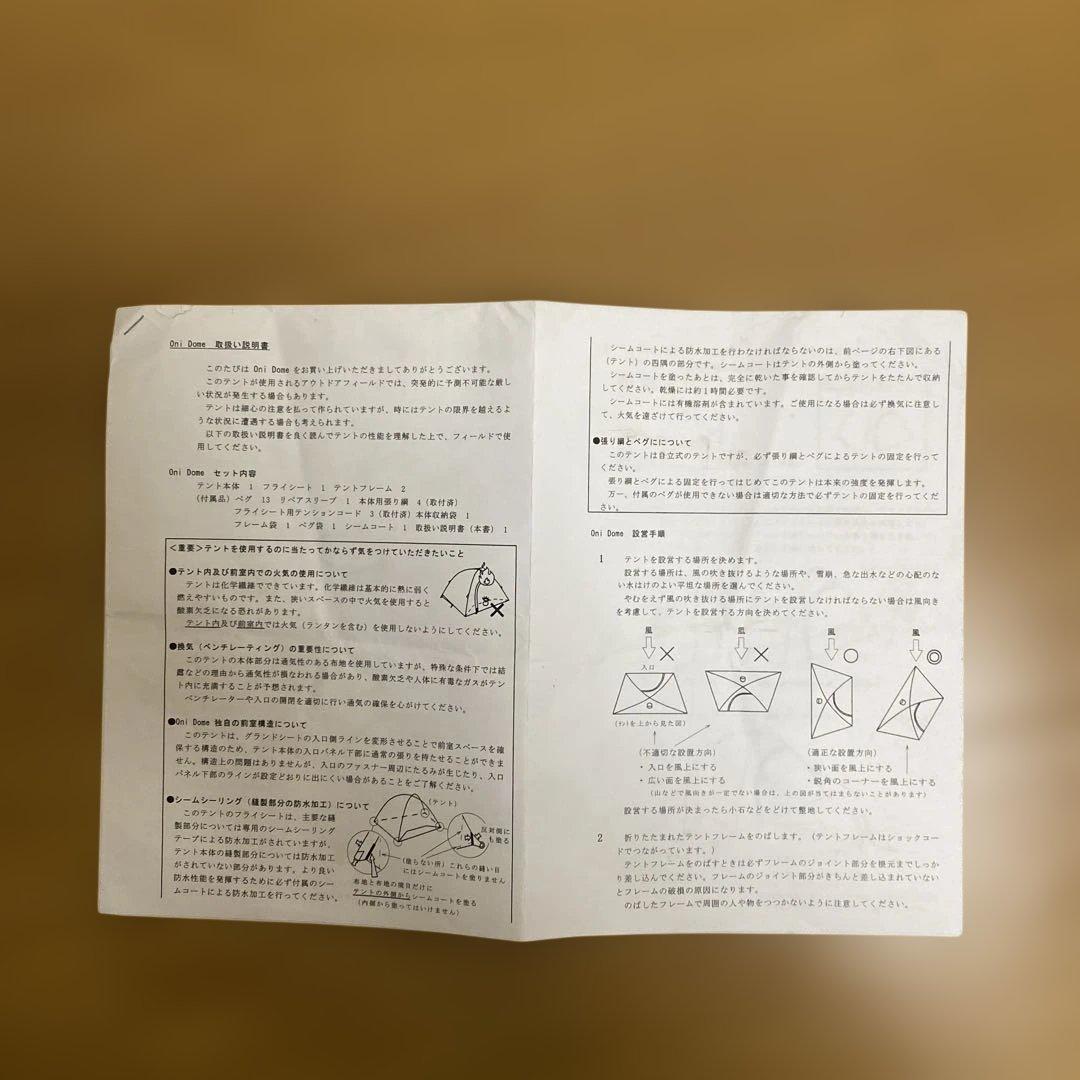 Oni Dome 取扱い説明書
このたびは Oni Dome をお買い上げいただきましてありがとうございます。
このテントが使用されるアウトドアフィールドでは、突発的に予測不可能な厳し
い状況が発生する場合もあります。
テントは細心の注意を払って作られていますが、時にはテントの限界を越えるよ
うな状況に遭遇する場合も考えられます。
以下の取扱い説明書を良く読んでテントの性能を理解した上で、フィールドで使
用してください。
Oni Dome セット内容
テント本体 1 フライシート 1 テントフレーム 2
(付属品) ペグ 13 リペアスリーブ 1 本体用張り綱 4 (取付済)
フライシート用テンションコード 3 (取付済) 本体収納袋 1
フレーム袋 1 ペグ袋 1 シームコート 1 取扱い説明書 (本書) 1
<重要>テントを使用するのに当たってかならず気をつけていただきたいこと
●テント内及び前室内での火気の使用について
テントは化学繊維でできています。化学繊維は基本的に熱に弱く
燃えやすいものです。また、狭いスペースの中で火気を使用すると
酸素欠乏になる恐れがあります。
テント内及び前室内では火気(ランタンを含む)を使用しないようにしてください。
●換気(ベンチレーティング)の重要性について
このテントの本体部分は通気性のある布地を使用していますが、特殊な条件下では結
露などの理由から通気性が損なわれる場合があり、酸素欠乏や人体に有毒なガスがテン
ト内に充満することが予想されます。
ベンチレーターや入口の開閉を適切に行い通気の確保を心がけてください。
●Oni Dome 独自の前室構造について
このテントは、グランドシートの入口側ラインを変形させることで前室スペースを確
保する構造のため、テント本体の入口パネル下部に通常の張りを持たせることができま
せん。構造上の問題はありませんが、入口のファスナー周辺にたるみが生じたり、入口
パネル下部のラインが設定どおりに出にくい場合があることをご了解ください。
●シームシーリング(縫製部分の防水加工)について
このテントのフライシートは、主要な縫
製部分については専用のシームシーリング
テープによる防水加工がされていますが、
テント本体の縫製部分については防水加工
がされていない部分があります。より良い
防水性能を発揮するために必ず付属のシー
ムコートによる防水加工を行ってください。
(テント)
反対側に
も塗る
(塗らない所) これらの縫い目
にはシームコートを塗りません
布地と布地の境目だけに
テントの外側からシームコートを塗る
(内側から塗ってはいけません)
シームコートによる防水加工を行わなければならないのは、前ページの右下図にある
(テント)の四隅の部分です。シームコートはテントの外側から塗ってください。
シームコートを塗ったあとは、完全に乾いた事を確認してからテントをたたんで収納
してください。乾燥には約1時間必要です。
シームコートには有機溶剤が含まれています。ご使用になる場合は必ず換気に注意し
て、火気を遠ざけて行ってください。
●張り綱とペグにについて
このテントは自立式のテントですが、必ず張り綱とペグによるテントの固定を行って
ください。
張り綱とペグによる固定を行ってはじめてこのテントは本来の強度を発揮します。
万一、付属のペグが使用できない場合は適切な方法で必ずテントの固定を行ってくだ
さい。
Oni Dome 設営手順
1 テントを設営する場所を決めます。
設営する場所は、風の吹き抜けるような場所や、雪崩、急な出水などの心配のな
い水はけのよい平坦な場所を選んでください。
やむをえず風の吹き抜ける場所にテントを設営しなければならない場合は風向き
を考慮して、テントを設営する方向を決めてください。
風 × 風 × 風 ○ 風 ◎
入口
(テントを上から見た図)
(不適切な設置方向)
・入口を風上にする
・広い面を風上にする
(適正な設置方向)
・狭い面を風上にする
・鋭角のコーナーを風上にする
(山などで風向きが一定でない場合は、上の図が当てはまらないことがあります)
設営する場所が決まったら小石などをどけて整地してください。
2 折りたたまれたテントフレームをのばします。(テントフレームはショックコー
ドでつながっています。)
テントフレームをのばすときは必ずフレームのジョイント部分を根元までしっか
り差し込んでください。フレームのジョイント部分がきちんと差し込まれていない
とフレームの破損の原因になります。
のばしたフレームで周囲の人や物をつつかないように注意してください。